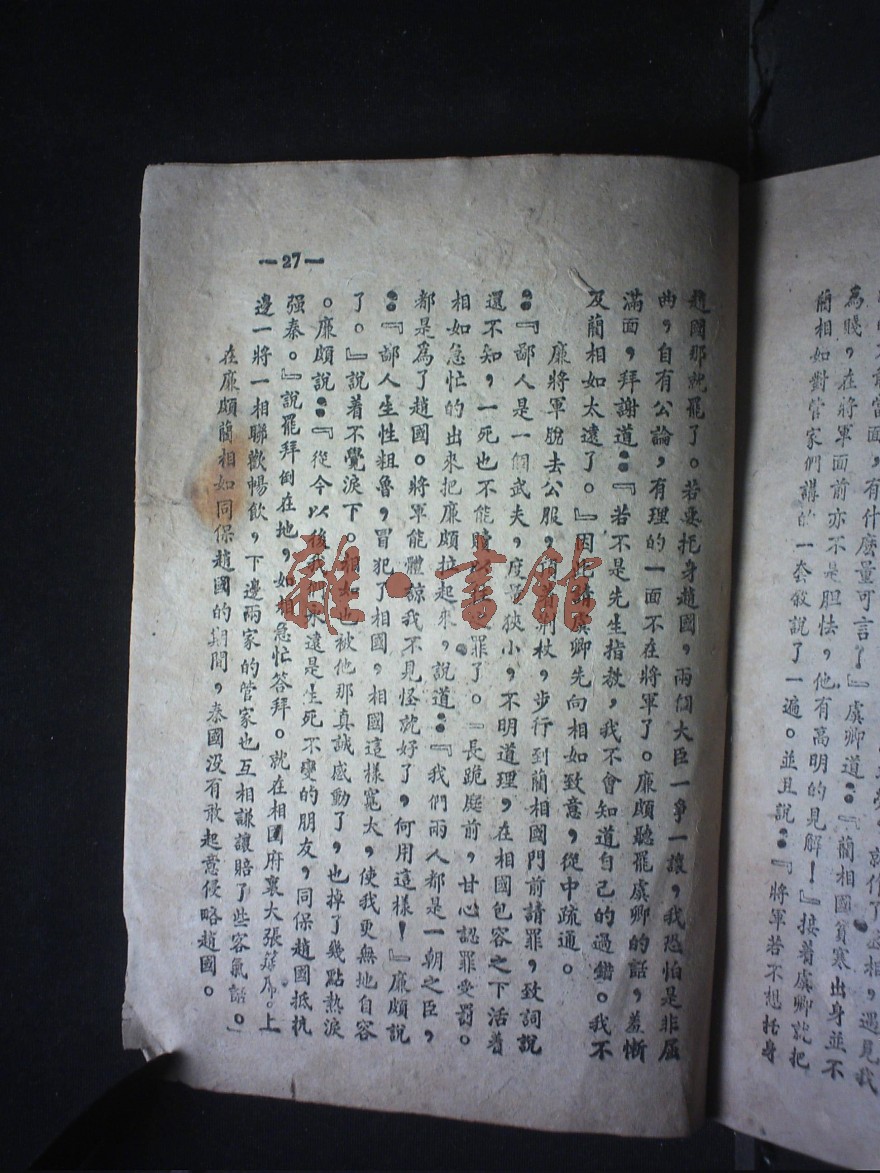 為賤，在將軍面前亦不是胆怯，他有高明的見解！』接着虞卿就把
藺相如對管家們講的一套敘說了一遍。並且說：『將軍若不想托身
趙國那就罷了。若要托身趙國，兩個大臣一爭一讓，我恐怕是非屈
曲，自有公論，有理的一面不在將軍了。廉頗聽罷虞卿的話，羞慚
滿面，拜謝道：『若不是先生指教，我不會知道自己的過錯。我不
及藺相如太遠了。』因此請虞卿先向相如致意，從中疏通。
廉將軍脫去公服，背着荆杖，步行到藺相國門前請罪，致詞說
：『鄙人是一個武夫，度量狹小，不明道理，在相國包容之下活着
還不知，一死也不能贖罪了。』長跪庭前，甘心認罪受罰。
相如急忙的出來把廉頗拉起來，說道：『我們兩人都是一朝之臣，
都是為了趙國。將軍能體諒我不見怪就好了，何用這樣！』廉頗說
：『鄙人生性粗魯，冒犯了相國，相國這樣寬大，使我更無地自容
了。』說着不覺淚下。相如也被他那真誠感動了，也掉了幾點熱淚
。廉頗說：『從今以後我們永遠是生死不變的朋友，同保趙國抵抗
强秦。』說罷拜倒在地，如相急忙答拜。就在相國府裏大張筵席。上
邊一將一相聯歡暢飲，下邊兩家的管家也互相謙讓賠了些客氣話。」
在廉頗藺相如同保趙國的期間，秦國没有敢起意侵略趙國。
—27—
雜·書館